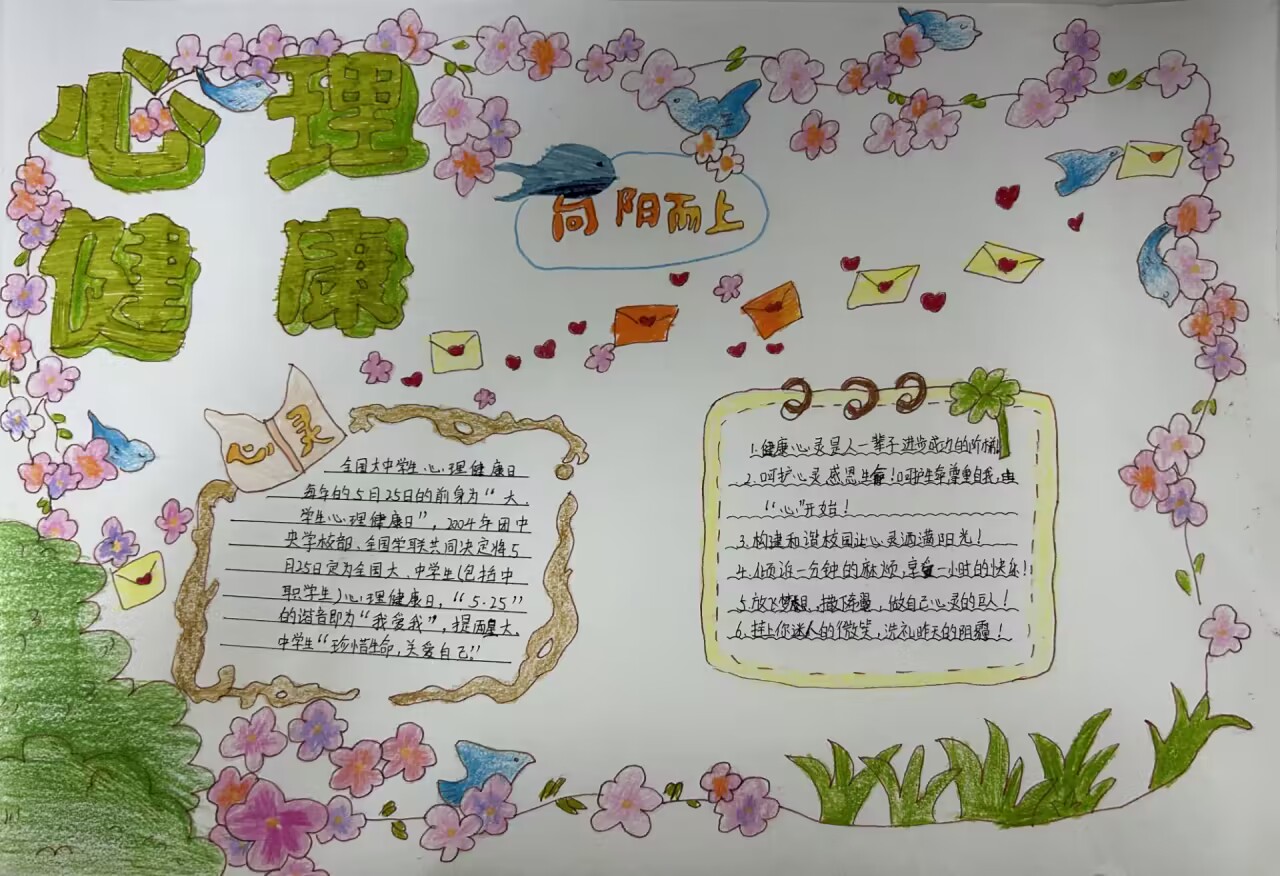 心理
健康
向阳而上
心灵
全国大中学生心理健康日
每年的5月25日的前身为“大、
学生心理健康日”，2004年团中
央学校部、全国学联共同决定将5
月25日定为全国大、中学生（包括中
职学生）心理健康日，“5·25”
的谐音即为“我爱我”，提醒大、
中学生“珍惜生命，关爱自己！！
1.健康心灵是人一辈子进步成功的阶梯
2.呵护心灵感恩生命！呵护生命尊重自我，由
“心”开始！
3.构建和谐校园让心灵洒满阳光！
4.倾诉一分钟的麻烦，享受一小时的快乐！
5.放飞梦想，撒下希望，做自己心灵的巨人！
6.挂上你迷人的微笑，洗礼昨天的阴霾！